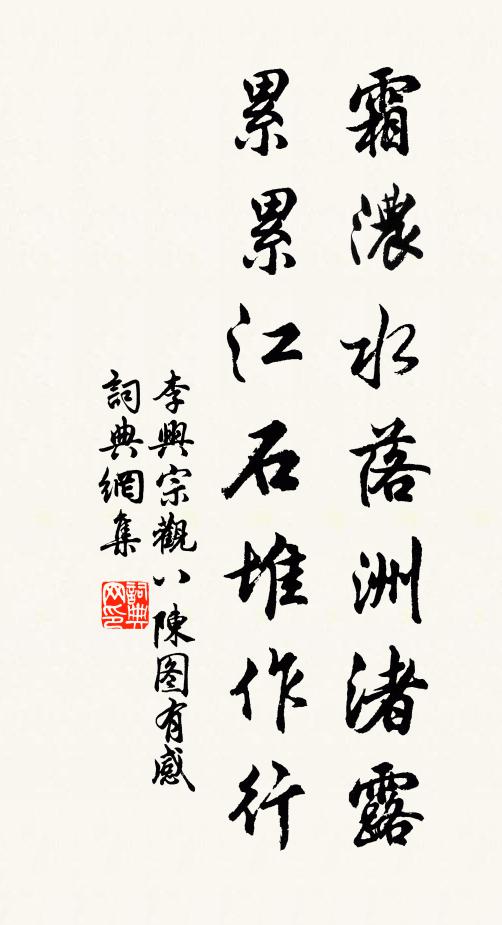 霜濃水落洲渚露
累累江石堆作行
李興宗觀八陳图有感
詞典網集
詞典网印